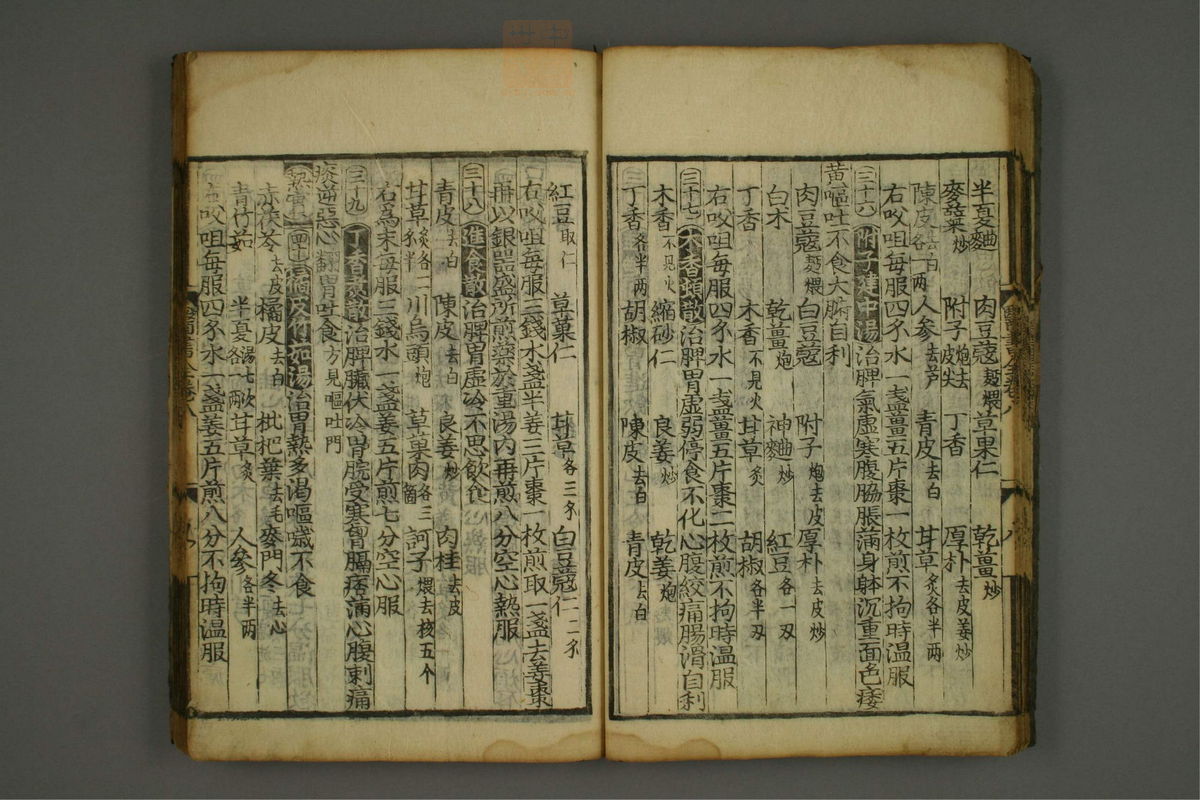 半夏麯 肉豆蔻麫煨 草果仁 乾薑炒
麥蘗炒 附子炮去皮尖 丁香 厚朴去皮姜炒
陳皮去白各一两 人參去芦 青皮去白 甘草炙各半两
右㕮咀每服四錢水一盞薑五片棗一枚煎不拘時温服
三十六 附子建中湯 治脾氣虚寒腹脇脹滿身躰沉重面色痿
黄嘔吐不食大腑自利
肉豆蔻麫煨 白豆蔻 附子炮去皮 厚朴去皮炒
白术 乾薑炮 神麯炒 紅豆各一两
丁香 木香不見火 甘草炙 胡椒各半两
右㕮咀每服四錢水一盞薑五片棗二枚煎不拘時温服
三十七 木香頓散 治脾胃虚弱停食不化心腹絞痛腸滑自利
木香不見火 縮砂仁 良姜炒 乾姜炮
丁香各半两 胡椒 陳皮去白 青皮去白
紅豆取仁 草菓仁 甘草各三錢 白豆蔻仁一二錢
右㕮咀每服三錢水盞半姜三片棗一枚煎取一盞去姜棗
再以銀器盛所煎藥於重湯内再煎八分空心熱服
三十八 進食散 治脾胃虚冷不思飲食
青皮去白 陳皮去白 良姜炒 肉桂去皮
甘草炙各一錢半 川烏頭炮 草菓肉各三箇 訶子煨去核五个
右爲末每服三錢水一盞姜五片煎七分空心服
三十九 丁香煑散 治脾臟伏冷胃脘受寒胷膈痞滿心腹刺痛
痰逆惡心翻胃吐食方見嘔吐門
四十 橘皮竹茹湯 治胃熱多渴嘔噦不食
赤茯苓去皮 橘皮去白 枇杷葉去毛 麥門冬去心
青竹茹 半夏湯七次各一两 甘草炙 人參各半两
右㕮咀每服四錢水一盞姜五片煎八分不拘時温服